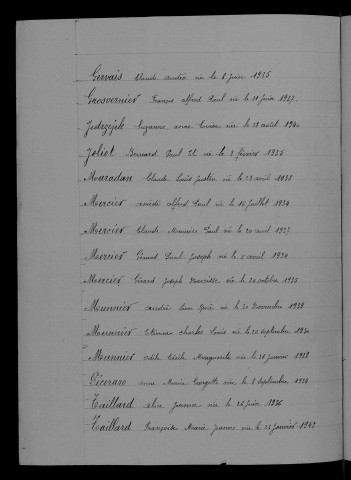 Gervais Claude andré née le 8 juin 1935
Grosvernier François Alfred Paul née le 10 juin 1927
Jedrzejek Suzanne anne Louise née le 28 août 1940
Joliot Bernard Paul né le 2 février 1935
Maradan Claude Louis Justin née le 23 avril 1938
Mercier Alfred Paul née le 16 juillet 1934
Mercier Claude Maurice Paul née le 20 avril 1937
Mercier Gérard Paul Joseph née le avril 1934
Mercier Gérard Joseph Narcisse née le 24 octobre 1935
Meunier andré née le 20 novembre 1939
Meunier Etienne Charles Louis née le 22 septembre
Meunier Odile Edith Marguerite née le janvier 1938
anne Marie Georgette née le 8 septembre
Taillard elise Jeanne née le 26 juin 1936
Taillard Françoise Marie Jeanne née le 25 janvier 1942